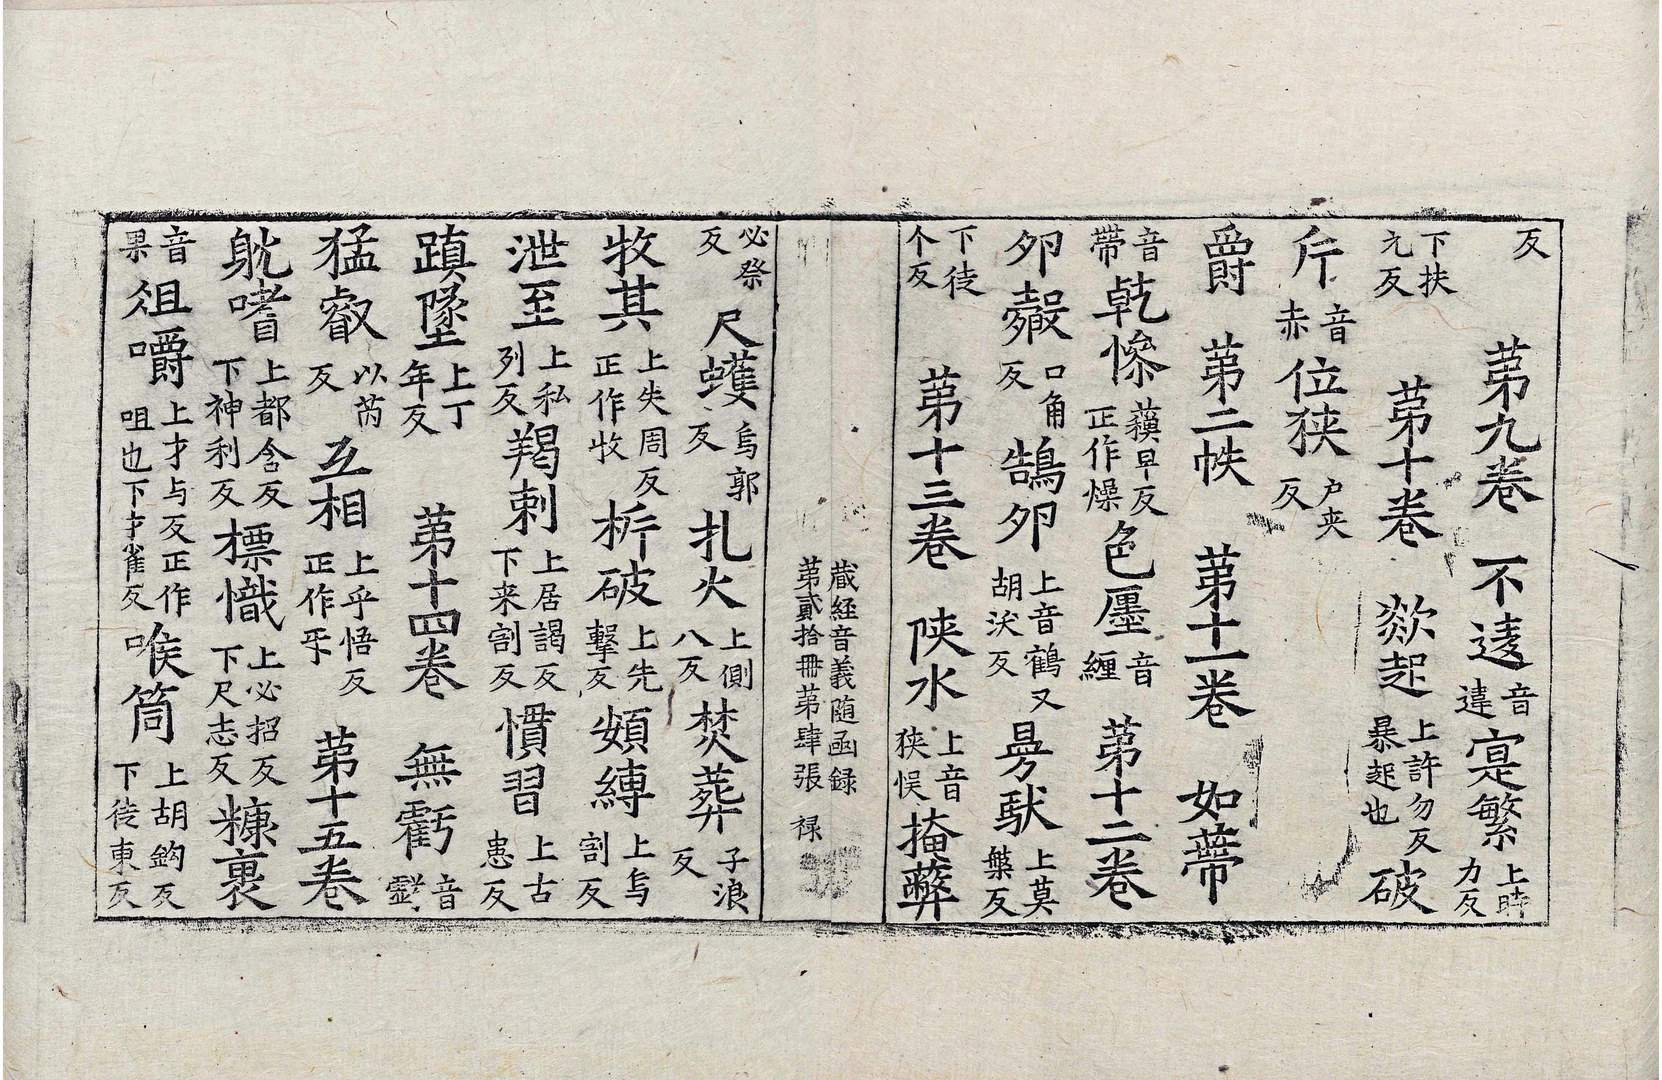 反 第九卷 不逺 音違 寔繁 上時力反
下扶亢反 第十卷 欻起 上許勿反暴起也 破
斤 音赤 位狭 户夹反
爵 第二帙 第十一卷 如蔕
音帶 乾㦗 上音早反正作燥 色㕓 音纏 第十二卷
夘㲉 口角反 鵠夘 上音鶴又胡沃反 㫄䭾 上莫槃反
下徒个反 第十三卷 陜水 上音狭悮 掩蔽
藏経音義随函録
第貳拾冊第肆張 禄
必祭反 尺蠖 烏郭反 扎火 上側八反 焚葬 子浪反
牧其 上失周反正作收 析破 上先擊反 頞縳 上烏割反
泄至 上私列反 羯刺 上居謁反下来割反 慣習 上古患反
蹎墜 上丁年反 第十四卷 無虧 音
猛叡 以芮反 𠄞相 上乎悟反正作𠀕 第十五卷
躭嗜 上都含反下神利反 標幟 上必招反下尺志反 糠裹
音果 俎嚼 上才与反正作咀也下才雀反 喉筒 上胡鈎反下徒東反